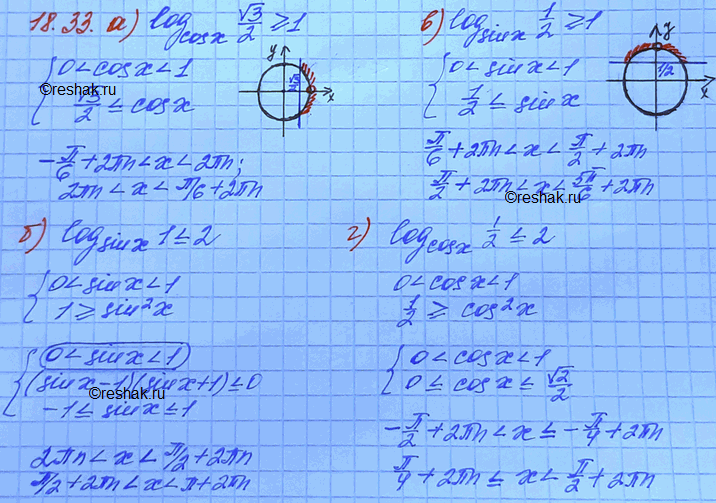 18.33. а) log_{cosx} √3/2 ≥ 1
{ 0 < cosx < 1
√3/2 ≤ cosx
©reshak.ru
y
x
√3/2
-π/6 + 2πn < x < 2πn;
2πn < x < π/6 + 2πn
в) log_{sinx} 1/2 ≥ 1
{ 0 < sinx < 1
1/2 ≤ sinx
y
x
1/2
π/6 + 2πn < x < π/2 + 2πn
π/2 + 2πn < x < 5π/6 + 2πn
©reshak.ru
б) log_{sinx} 1 ≤ 2
{ 0 < sinx < 1
1 ≥ sin²x
{ 0 < sinx < 1
(sinx-1)(sinx+1) ≤ 0
©reshak.ru
-1 ≤ sinx ≤ 1
2πn < x < π/2 + 2πn
π/2 + 2πn < x < π + 2πn
г) log_{cosx} 1/2 ≤ 2
0 < cosx < 1
1/2 ≥ cos²x
{ 0 < cosx < 1
0 ≤ cosx ≤ √2/2
-π/2 + 2πn < x ≤ -π/4 + 2πn
π/4 + 2πn ≤ x < π/2 + 2πn